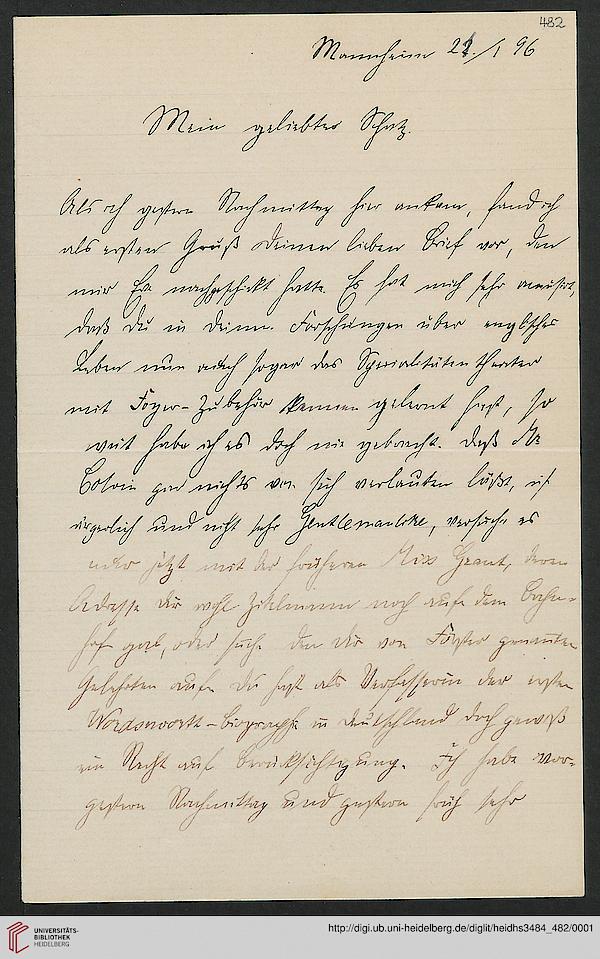 482
Mannheim 22./1 96
Mein geliebter Schatz.
Als ich gestern Nachmittag hier ankam, fand ich
als ersten Gruß Deinen lieben Brief vor, den
mir Ea nachgeschickt hatte. Es hat mich sehr amüsirt,
daß Du in Deinen Forschungen über englisches
Leben nun auch sogar das Spezialitätentheater
mit Foyer-Zubehör kennen gelernt hast, so
weit habe ich es doch nie gebracht. Daß Mr
Colvin gar nichts von sich verlauten läßt, ist
ärgerlich und nicht sehr Gentlemanlike, versuche es
oder jetzt mit der früheren Miss Grant, deren
Adresse Dir wohl Zitelmann noch auf dem Bahn-
hof gab, oder suche den Dir von Förster genannten
Gelehrten auf. Du hast als Verfasserin der ersten
Wordsworth-Biographie in Deutschland doch gewiß
ein Recht auf Berücksichtigung. Ich habe vor-
gestern Nachmittag und gestern früh sehr
UNIVERSITÄTS-
BIBLIOTHEK
HEIDELBERG
http://digi.ub.uni-heidelberg.de/diglit/heidhs3484_482/0001